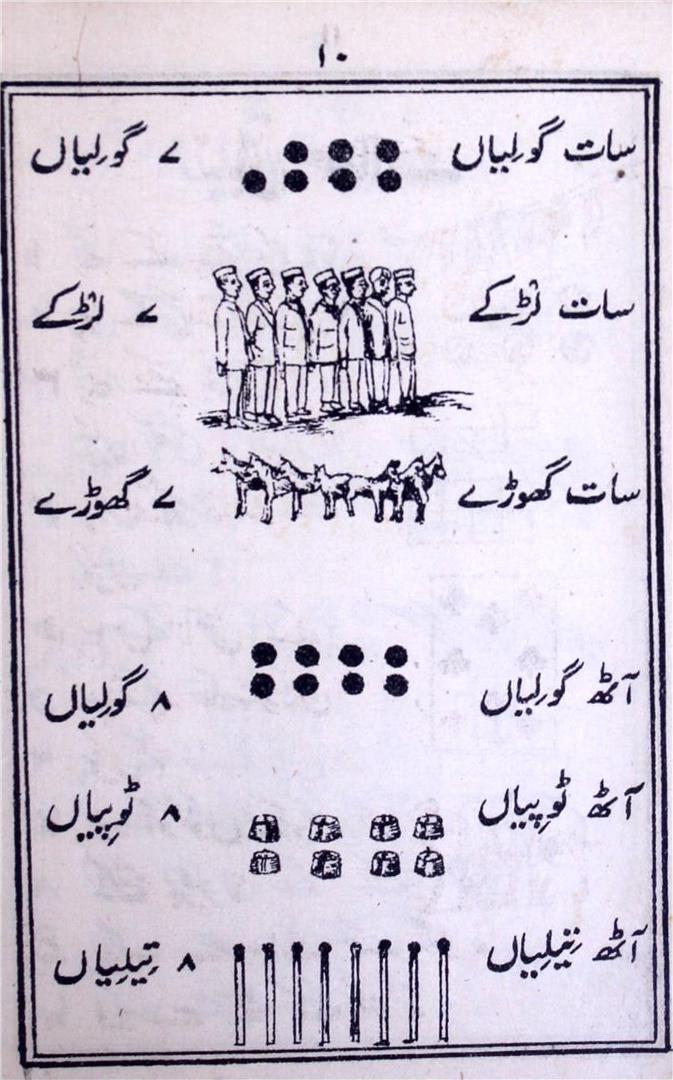 ۱۰
سات گورلیاں ۷ گورلیاں
سات لڑکے ۷ لڑکے
سات گھوڑے ۷ گھوڑے
آٹھ گورلیاں ۸ گورلیاں
آٹھ ٹوپیاں ۸ ٹوپیاں
آٹھ تیلیاں ۸ تیلیاں